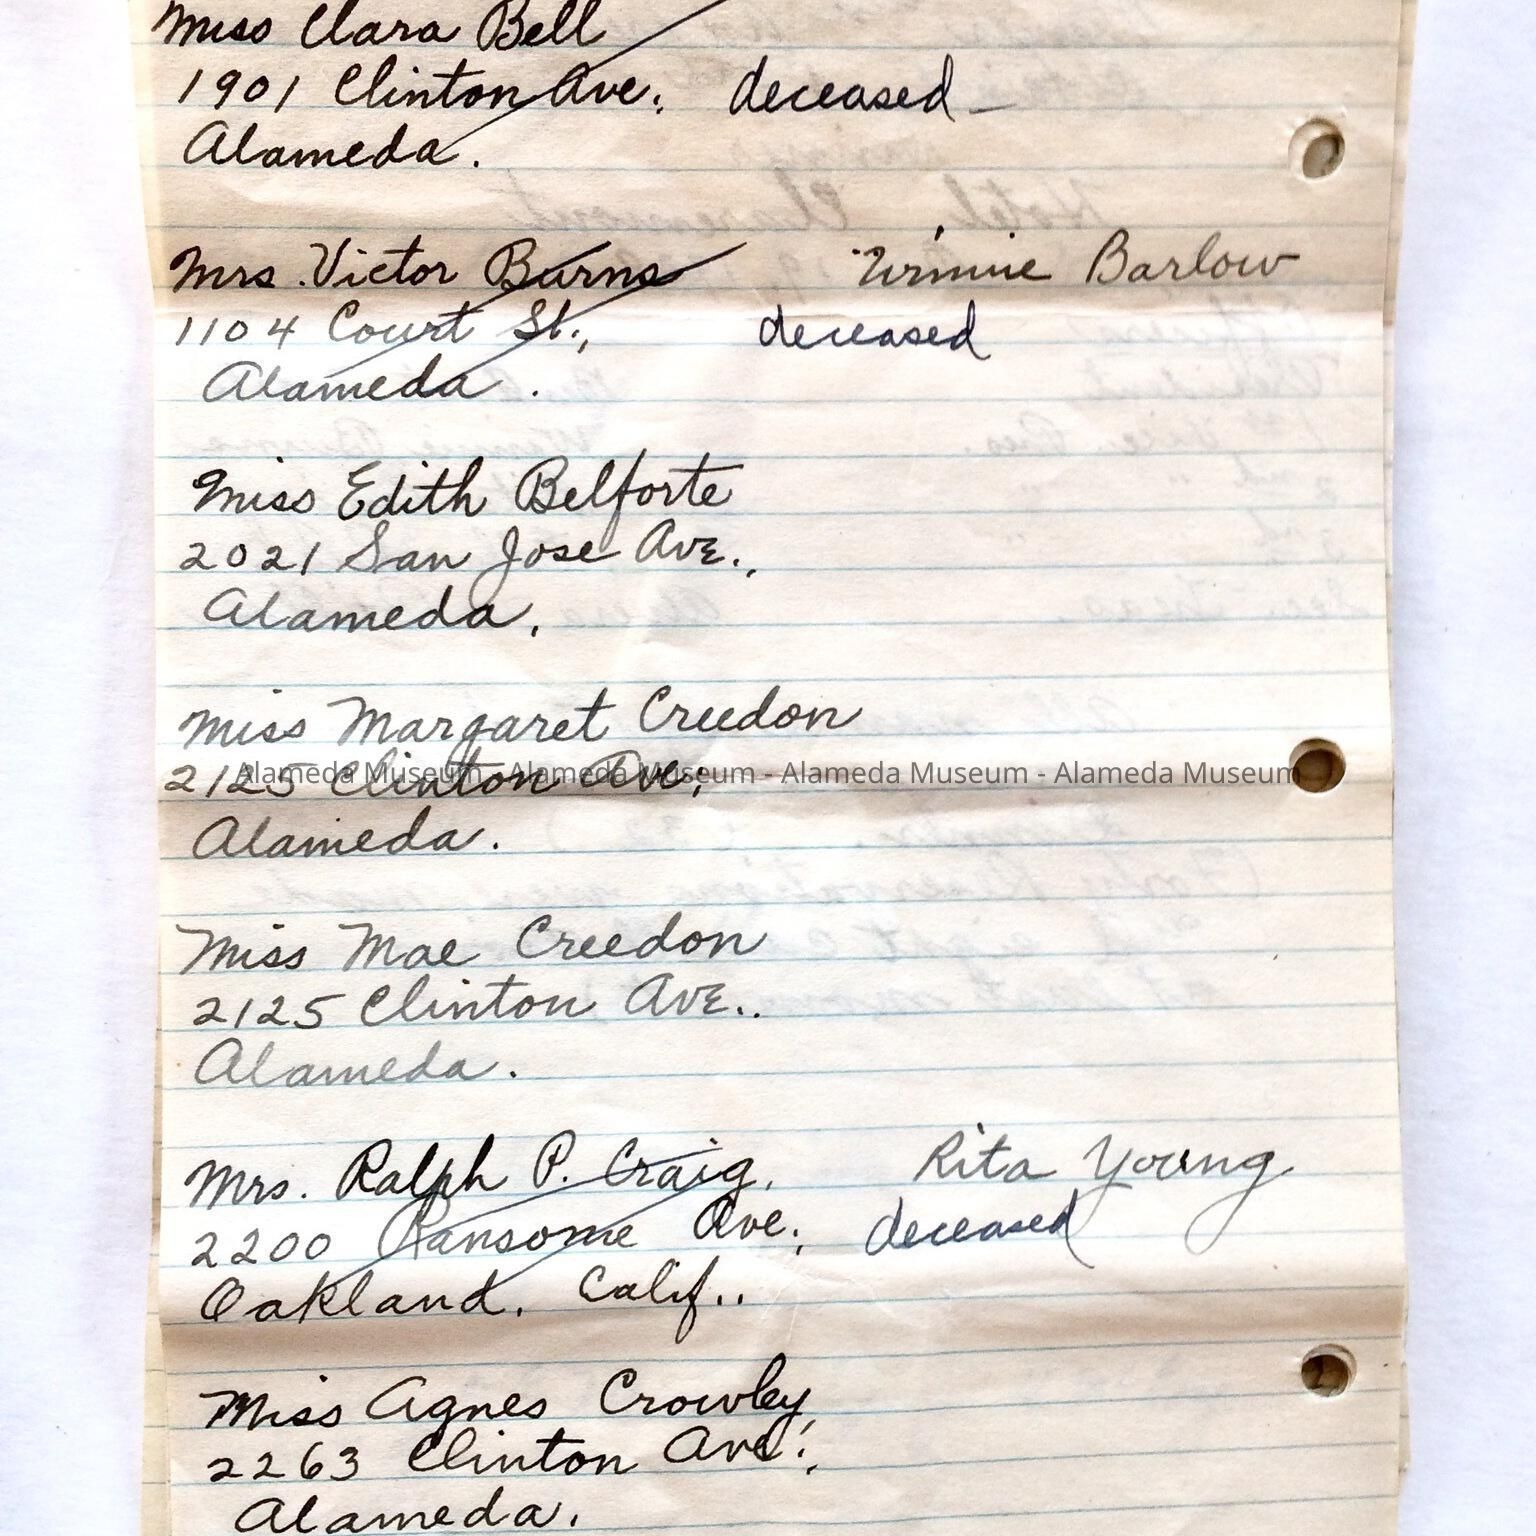 Miss Clara Bell
1901 Clinton Ave., deceased -
Alameda.
Mrs. Victor Burns Winnie Barlow
1104 Court St., deceased
Alameda.
Miss Edith Belforte
2021 San Jose Ave.,
Alameda.
Miss Margaret Creedon
2125 Clinton Ave,
Alameda Museum - Alameda Museum - Alameda Museum - Alameda Museum
Alameda.
Miss Mae Creedon
2125 Clinton Ave..
Alameda.
Mrs. Ralph P. Craig, Rita Young
2200 Ransome Ave., deceased
Oakland, Calif..
Miss Agnes Crowley,
2263 Clinton Ave.,
Alameda.